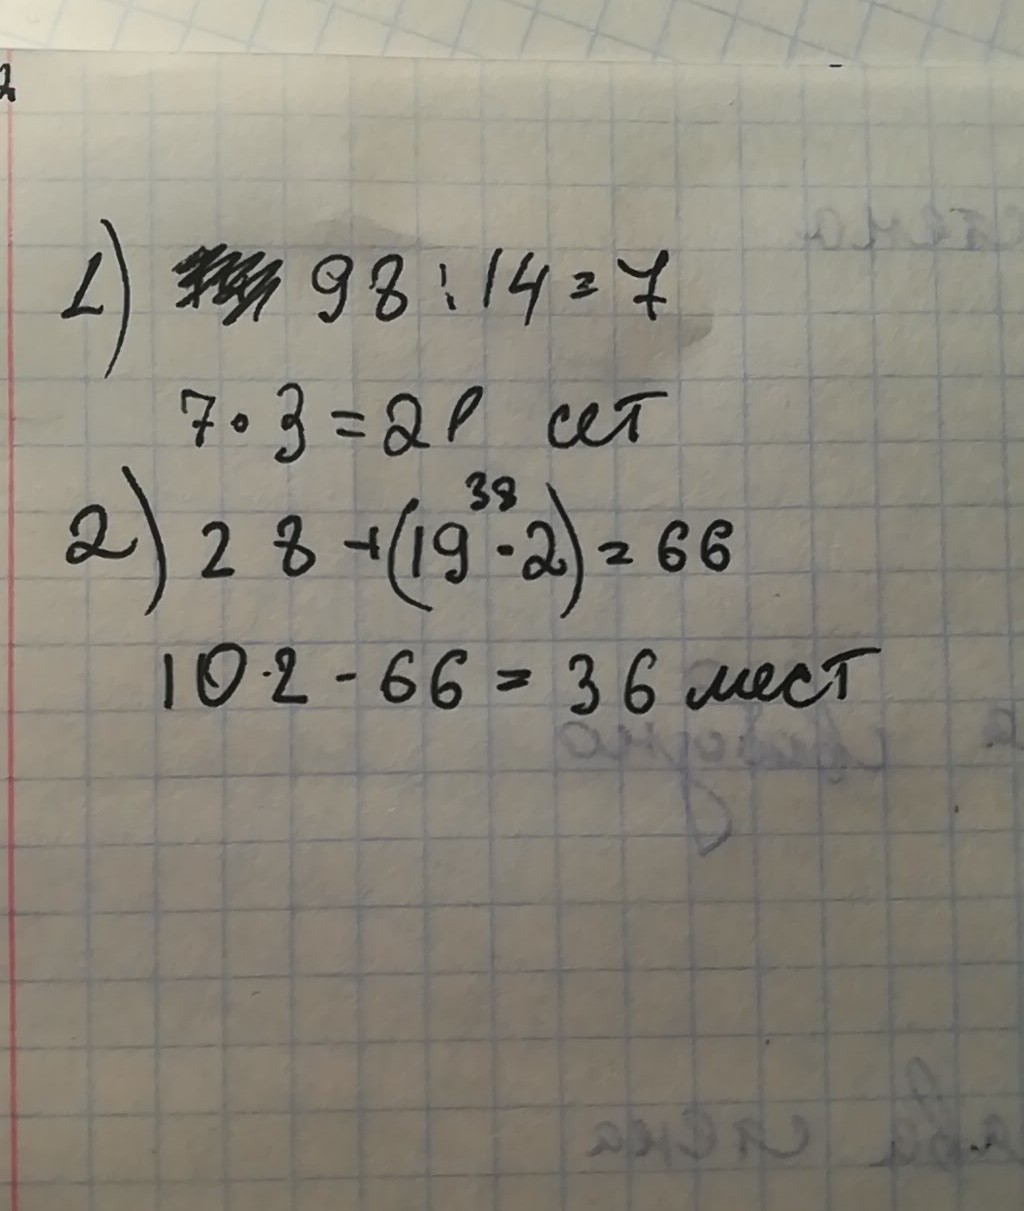 1) 98 : 14 = 7
7 · 3 = 21 сет
2) 28 + (19 · 2) = 66
38
10·2 - 66 = 36 мест